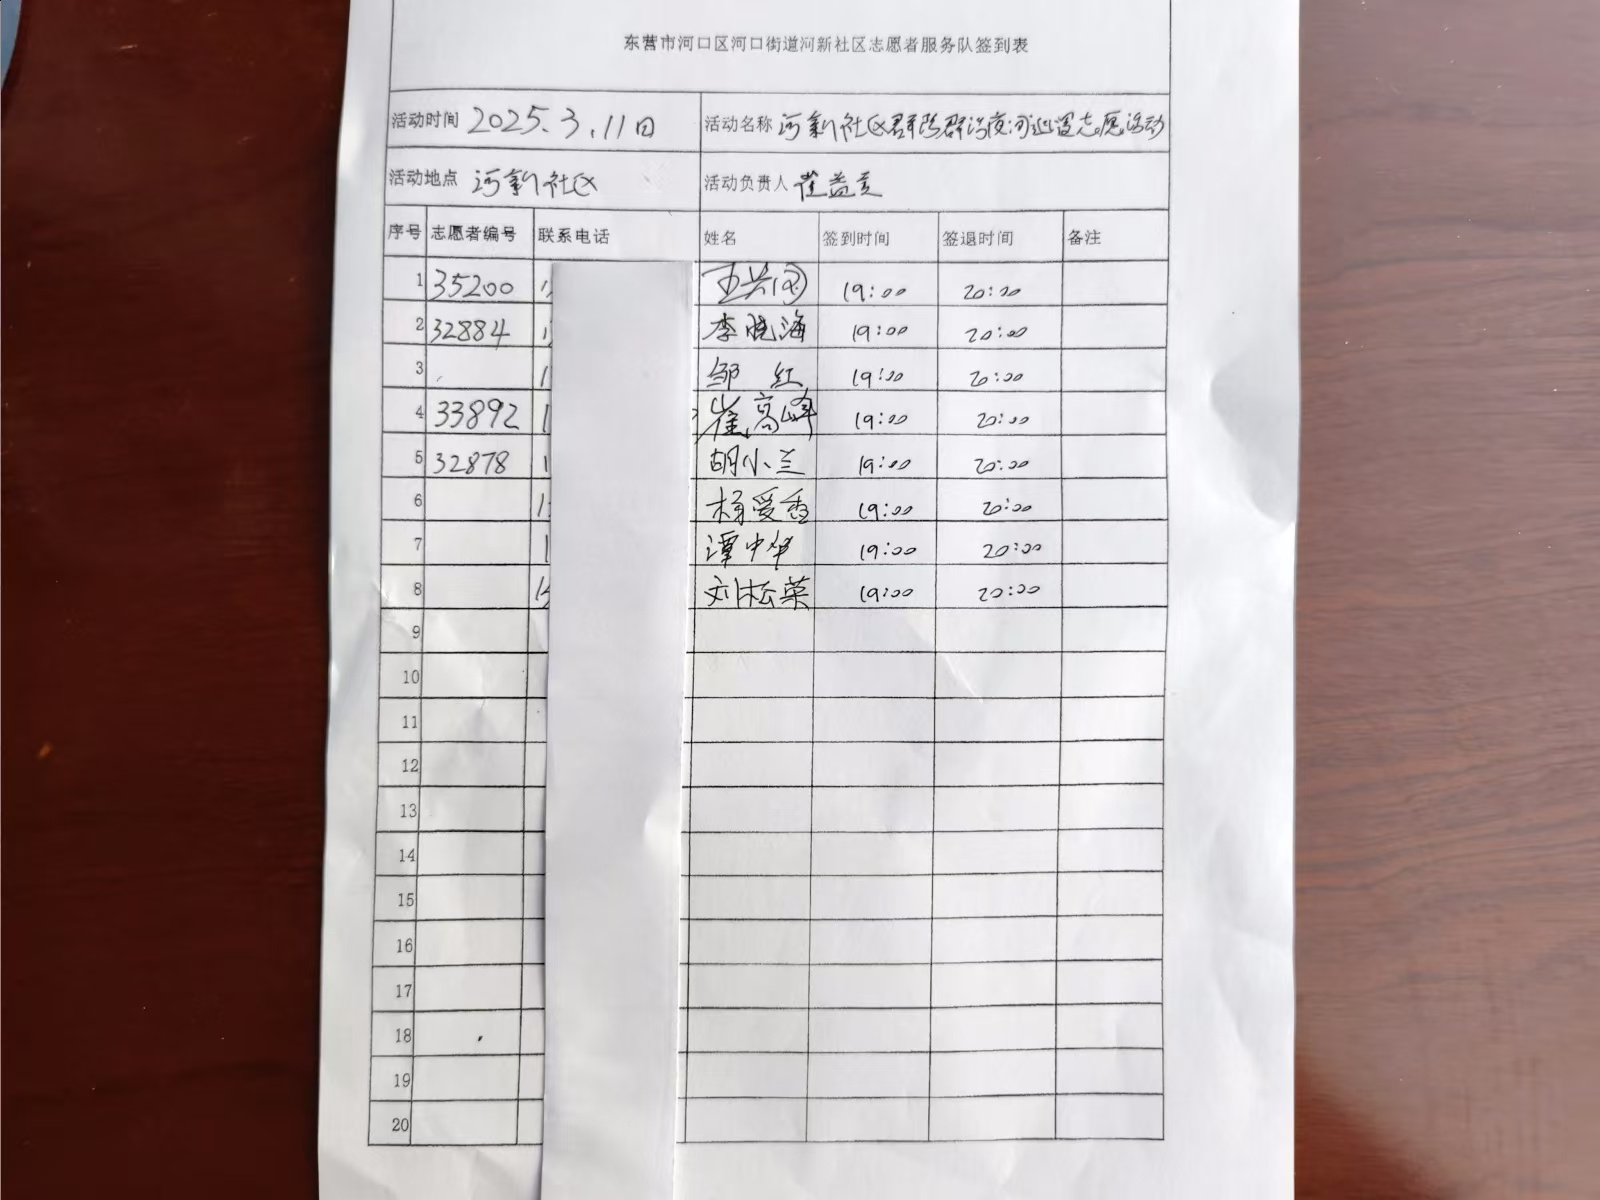 东营市河口区河口街道河新社区志愿者服务队签到表
活动时间 2025.3.11日 活动名称 河新社区群防群治夜间巡逻志愿活动
活动地点 河新社区 活动负责人 崔益
序号 志愿者编号 联系电话 姓名 签到时间 签退时间 备注
1 35200 王兴 19:00 20:00
2 32884 李晓海 19:00 20:00
3 邹红 19:00 20:00
4 33892 崔高峰 19:00 20:00
5 32878 胡小兰 19:00 20:00
6 杨爱香 19:00 20:00
7 潭中华 19:00 20:00
8 刘松荣 19:00 20:00
9
10
11
12
13
14
15
16
17
18
19
20